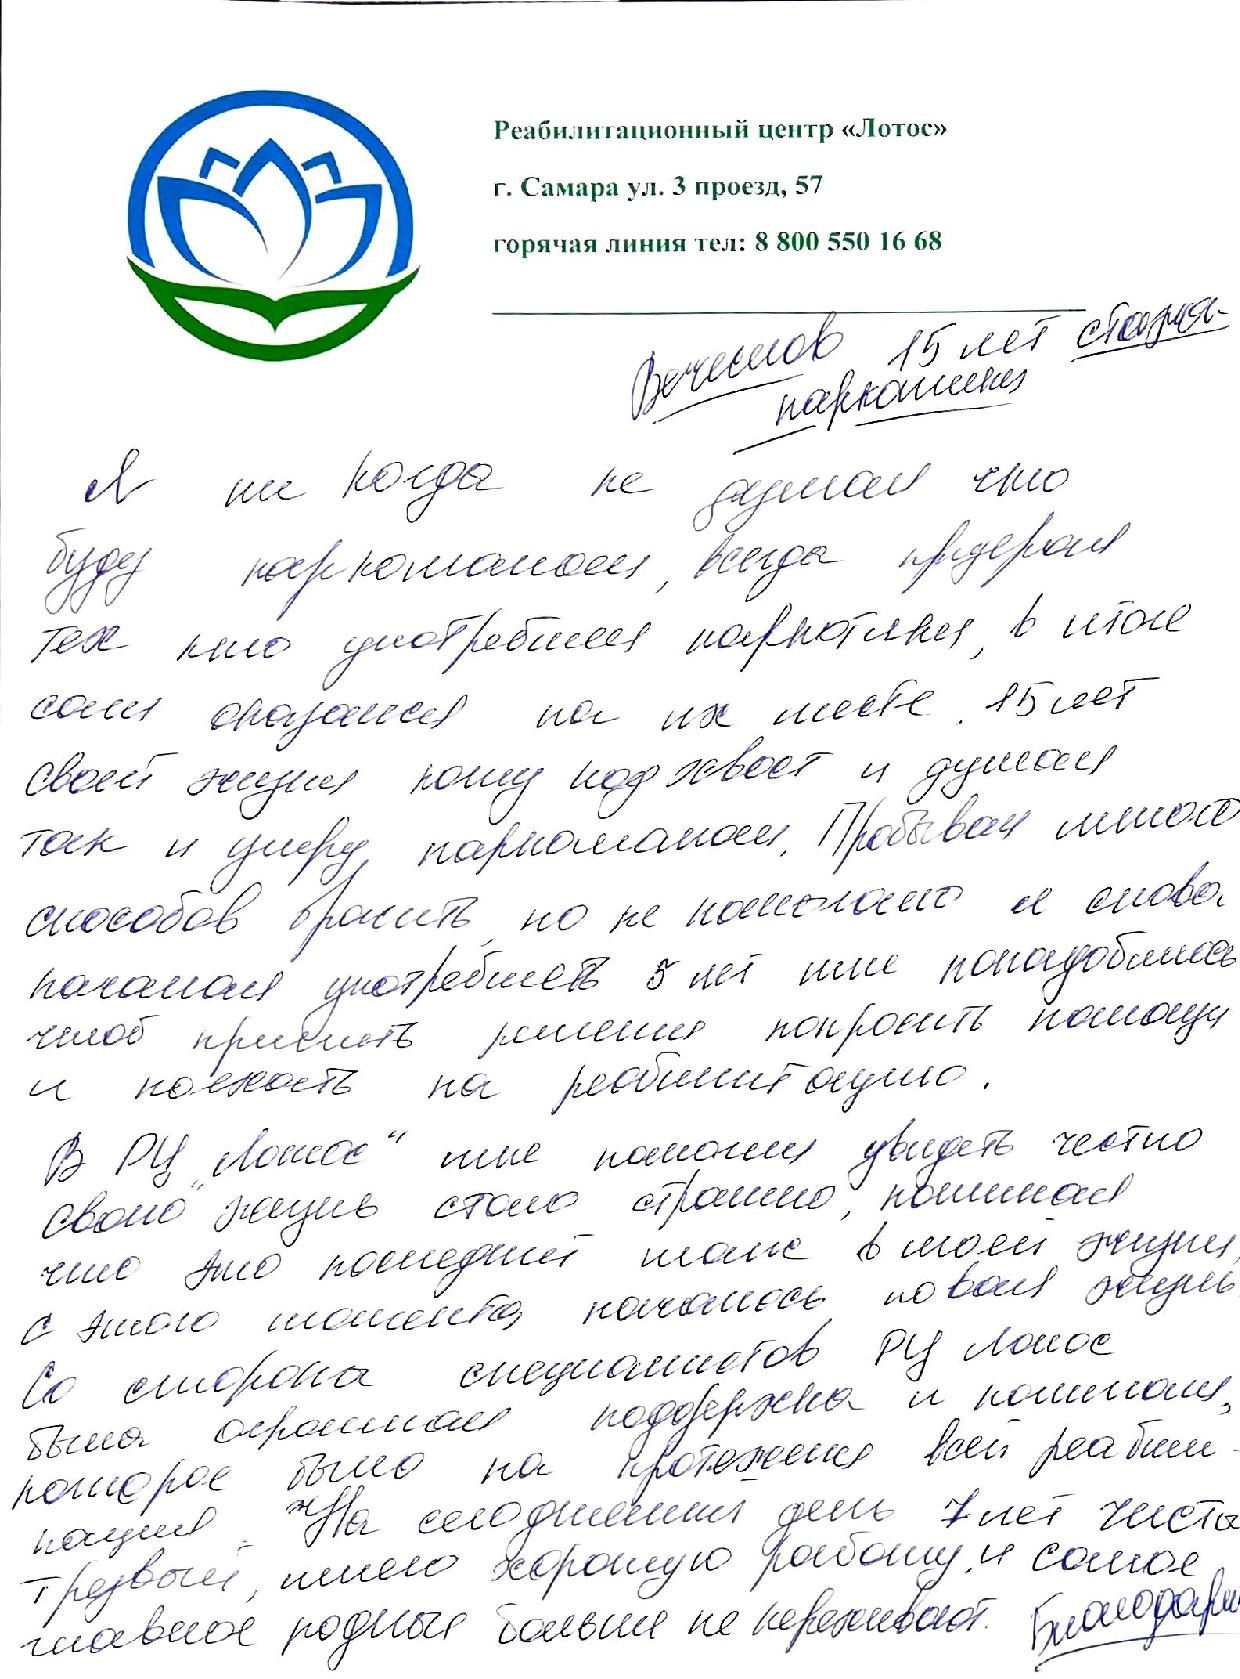 Реабилитационный центр «Лотос»
г. Самара ул. 3 проезд, 57
горячая линия тел: 8 800 550 16 68
15 лет стажа
наркомании
Я ни когда не думал что
буду наркоманом, всегда
тех кто употреблял наркотики, в итоге
сам оказался на их месте. 15 лет
своей жизни кошу под хвост и думал
так и умру наркоманом. Пробывал много
способов бросить, но не помогало и снова
начинал употреблять 5 лет мне понадобилось
чтоб принять решения попросить помощи
и поехать на реабилитацию.
В РЦ „Лотос“ мне помогли увидеть честно
свою жизнь стало страшно, понимал
что это последний шанс в моей жизни,
с этого момента началось новая жизнь.
Со сторона специалистов РЦ Лотос
была огромная поддержка и
которое было на протяжения всей реабили-
тация. На сегодняшний день 7 лет чисты
трезвый, имею хорошую работу, и самое
главное родные больше не переживают. Благодарю